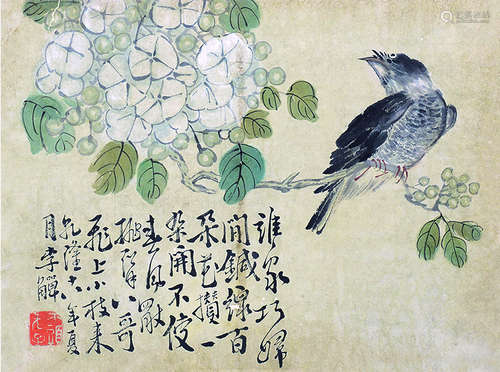 誰家巧婦
閒鍼線百
朵花攢一
朵開不使
春風
八哥
飛上小枝来
乾隆十年夏
月李鱓